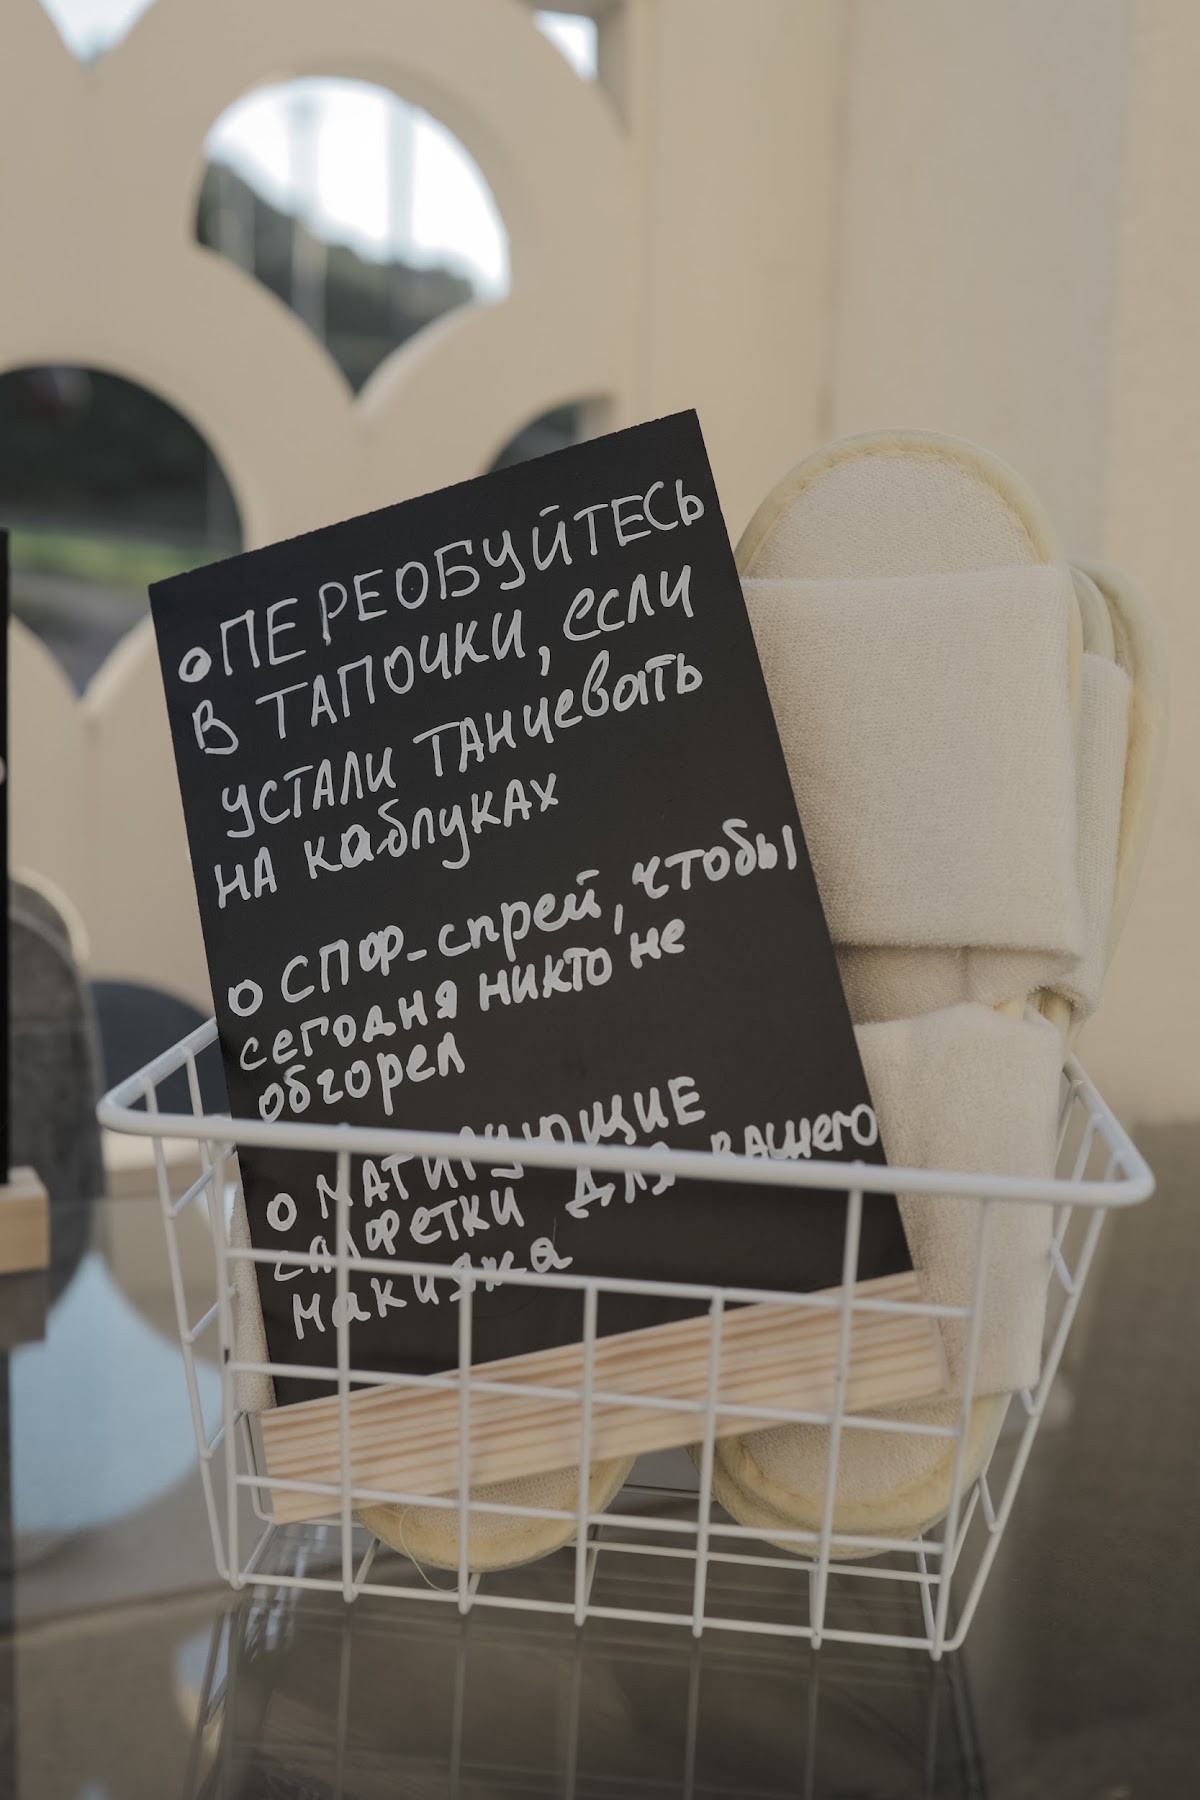 ПЕРЕОБУЙТЕСЬ
В ТАПОЧКИ, если
УСТАЛИ ТАНцевать
НА каблуках
СПФ-спрей, чтобы
сегодня никто не
обгорел
МАТИРУЮЩИЕ
салфетки для вашего
макияжа